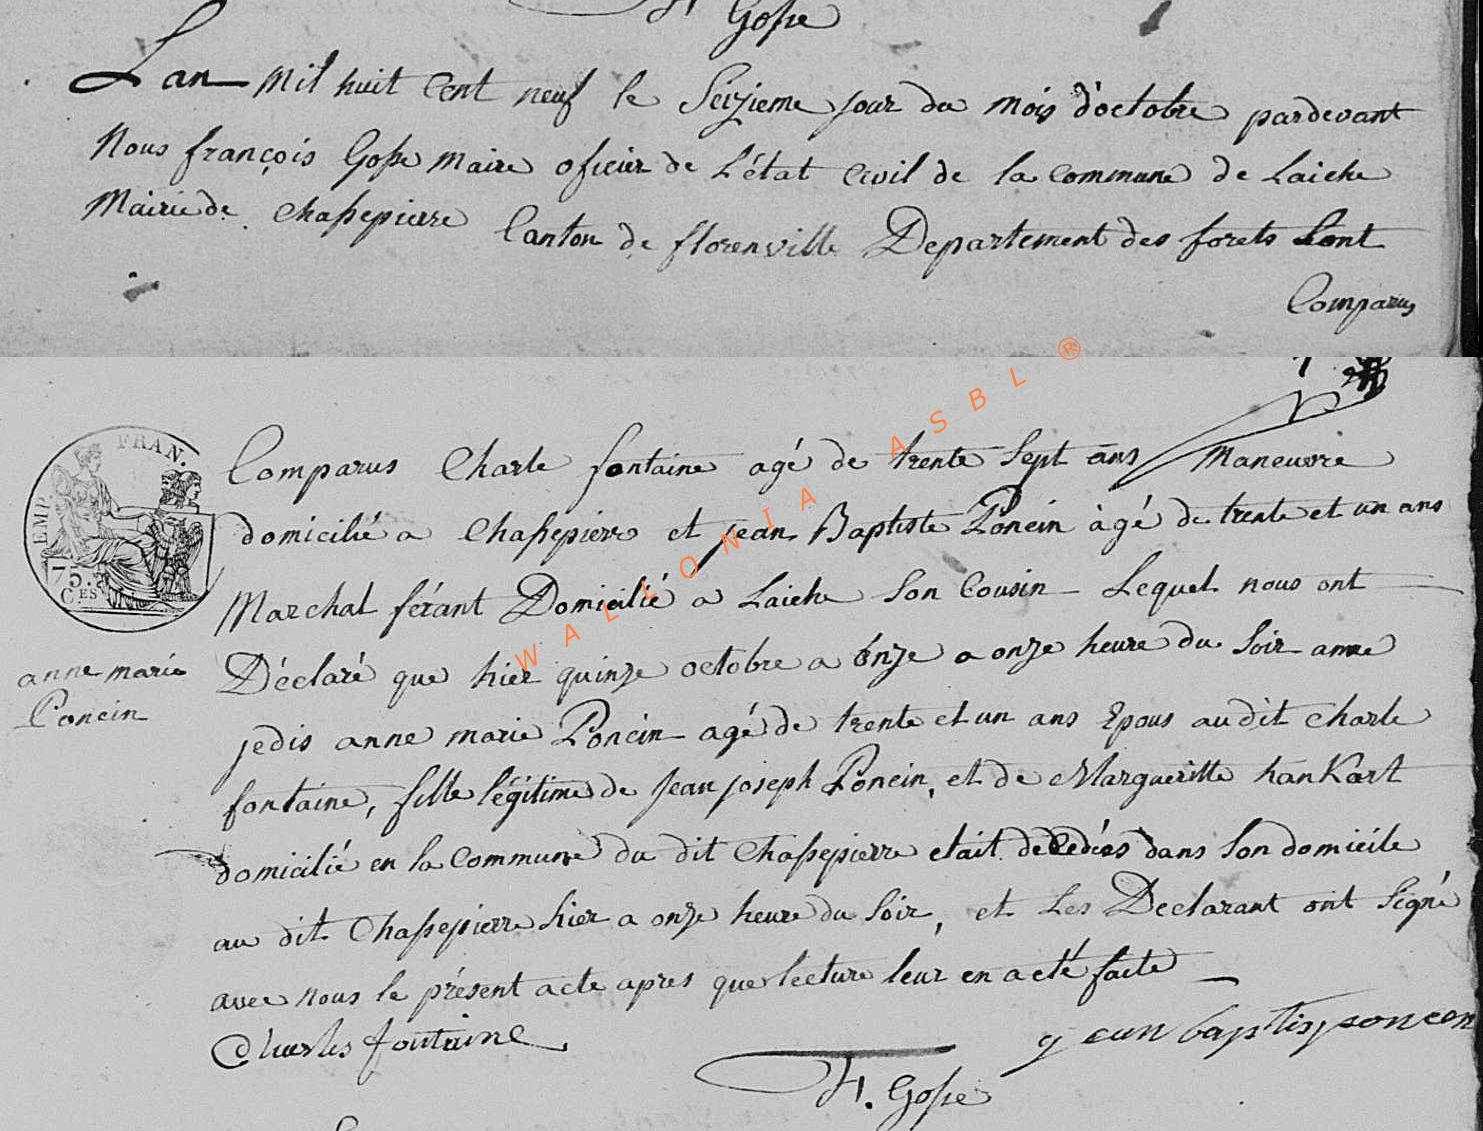 F. Gosse
Lan mil huit Cent neuf le Seizieme jour du mois d'octobre pardevant
Nous françois Gosse maire oficier de L'état Civil de la Commune de Laiche
Mairie de Chassepierre Canton de florenville Departement des forets Sont
Comparus
Comparus Charle fontaine agé de trente Sept ans Maneuvre
domicilié a Chassepierre et jean Baptiste Poncin àgé de trente et un ans
Marchal férant Domicilié a Laiche Son Cousin Lequel nous ont
Déclaré que hier quinze octobre a onze a onze heure du Soir
jedis anne marie Poncin agé de trente et un ans Epous audit Charle
fontaine, fille légitime de jean joseph Poncin, et de Margueritte hankart
domicilié en la Commune du dit Chassepierre etait dans Son domicile
au dit Chassepierre hier a onze heure du Soir, et Les Declarant ont Signé
avec nous le présent acte apres que lecture leur en a eté faite
Charles fontaine
y ean baptis poncen
F. Gosse
anne marie
Poncin
EMP. FRAN.
75.
C.ES
WALLONIA ASBL ®